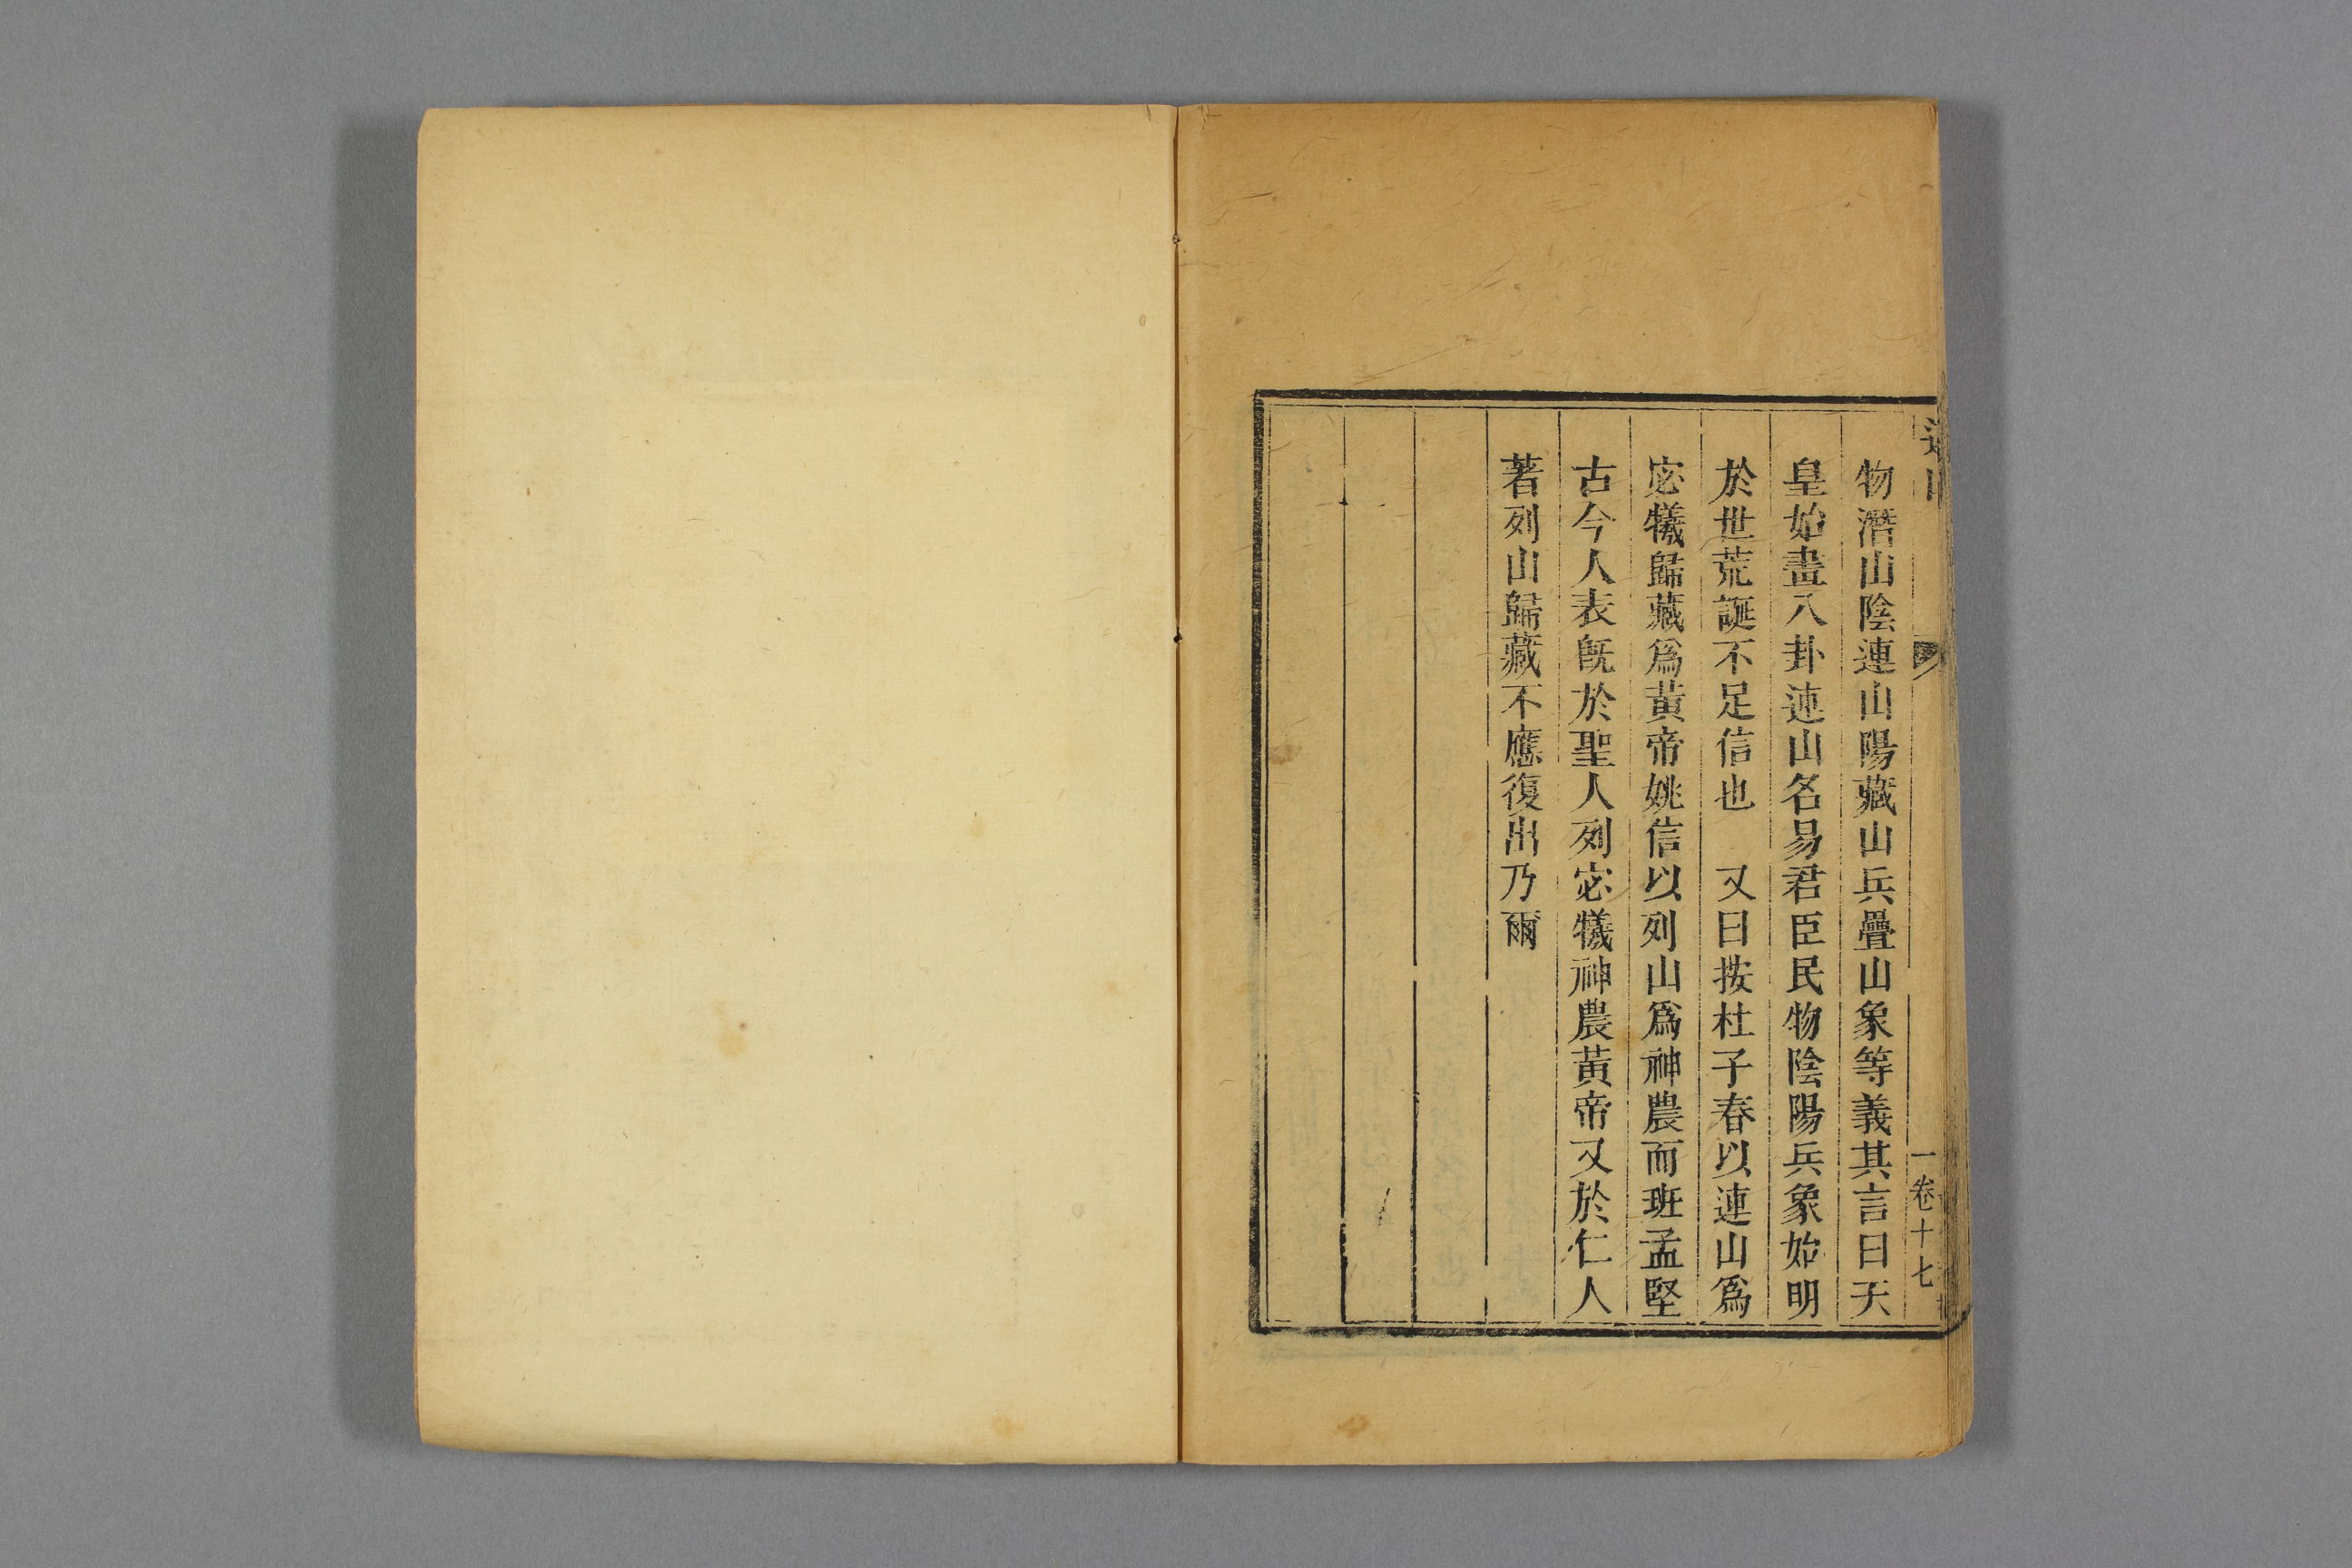 連山
一卷十七
物潛山陰連山陽藏山兵疊山象等義其言曰天
皇始畫八卦連山名易君臣民物陰陽兵象始明
於世荒誕不足信也　又曰按杜子春以連山爲
宓犧歸藏爲黃帝姚信以列山爲神農而班孟堅
古今人表旣於聖人列宓犧神農黃帝又於仁人
著列山歸藏不應復出乃爾